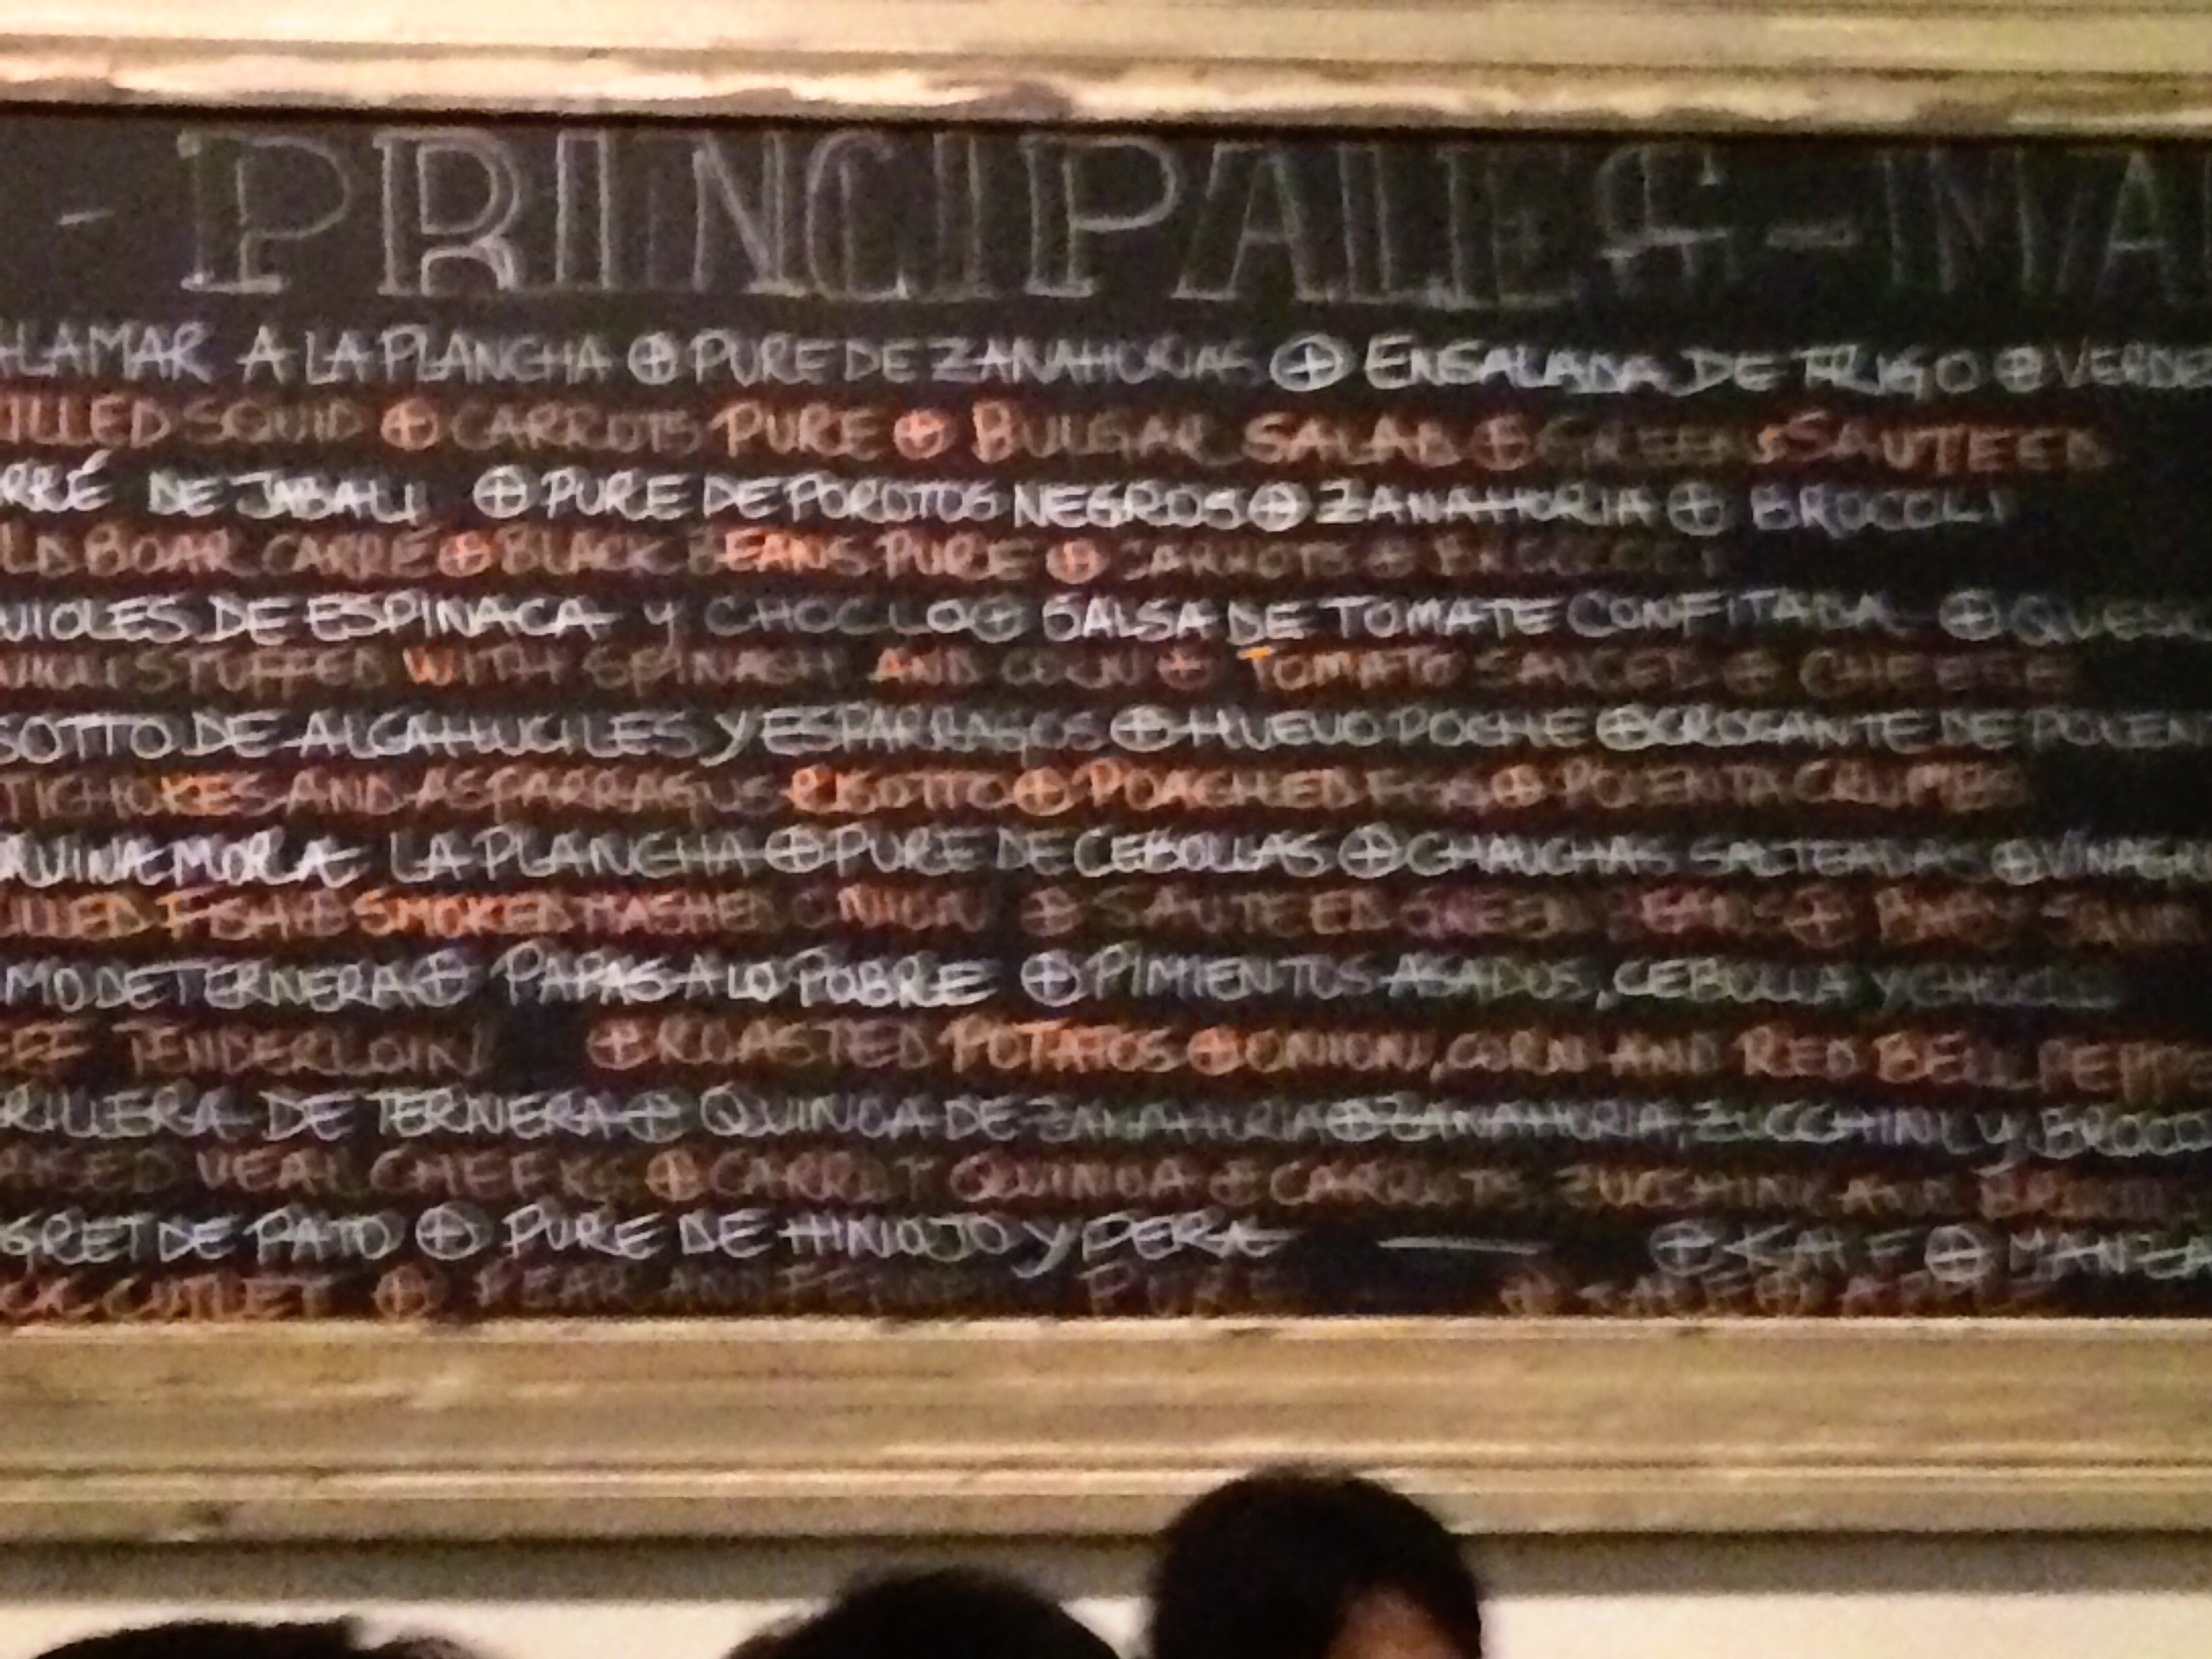 - PRINCIPALES - MA
LAMAR A LA PLANCHA ⊕ PURE DE ZANAHORIAS ⊕ ENSALADA DE TRIGO ⊕ VERDE
ILLED SQUID ⊕ CARROTS PURE ⊕ BULGAR SALAD ⊕ GREENS SAUTEED
RRÉ DE JABALI ⊕ PURE DE POROTOS NEGROS ⊕ ZANAHORIA ⊕ BROCOLI
LD BOAR CARRE ⊕ BLACK BEANS PURE ⊕ CARROTS ⊕
VIOLES DE ESPINACA Y CHOCLO ⊕ SALSA DE TOMATE CONFITADA ⊕ QUESO
STUFFED WITH SPINACH AND CORN ⊕ TOMATO SAUCE ⊕ CHEESE
SOTTO DE ALCAHUCILES Y ESPARRAGOS ⊕ HUEVO POCHE ⊕ CROCANTE DE POLEN
TICHOKES AND ASPARRAGUS RISOTTO ⊕ POACHED EGG ⊕ POLENTA CRUMBS
RVINA MORA LA PLANCHA ⊕ PURE DE CEBOLLAS ⊕ CHAUCHAS SALTEADAS ⊕ VINAGR
ILLED FISH ⊕ SMOKED MASHED ONION ⊕ SAUTEED GREEN BEANS ⊕
MO DE TERNERA ⊕ PAPAS A LO POBRE ⊕ PIMIENTOS ASADOS, CEBOLLA Y CHOCLO
EF TENDERLOIN ⊕ ROASTED POTATOS ⊕ ONION, CORN AND RED BELL PEPPE
RILLERA DE TERNERA ⊕ QUINOA DE ZANAHORIA ⊕ ZANAHORIA, ZUCCHINI Y BROCO
VEAL CHEEKS ⊕ CARROT QUINOA ⊕ CARROTS ZUCCHINI AND
GRET DE PATO ⊕ PURE DE HINOJO Y PERA — ⊕ KALE ⊕ MANZA
CK CUTLET ⊕ PEAR AND FENNEL PURE ⊕ KALE ⊕ APPLE